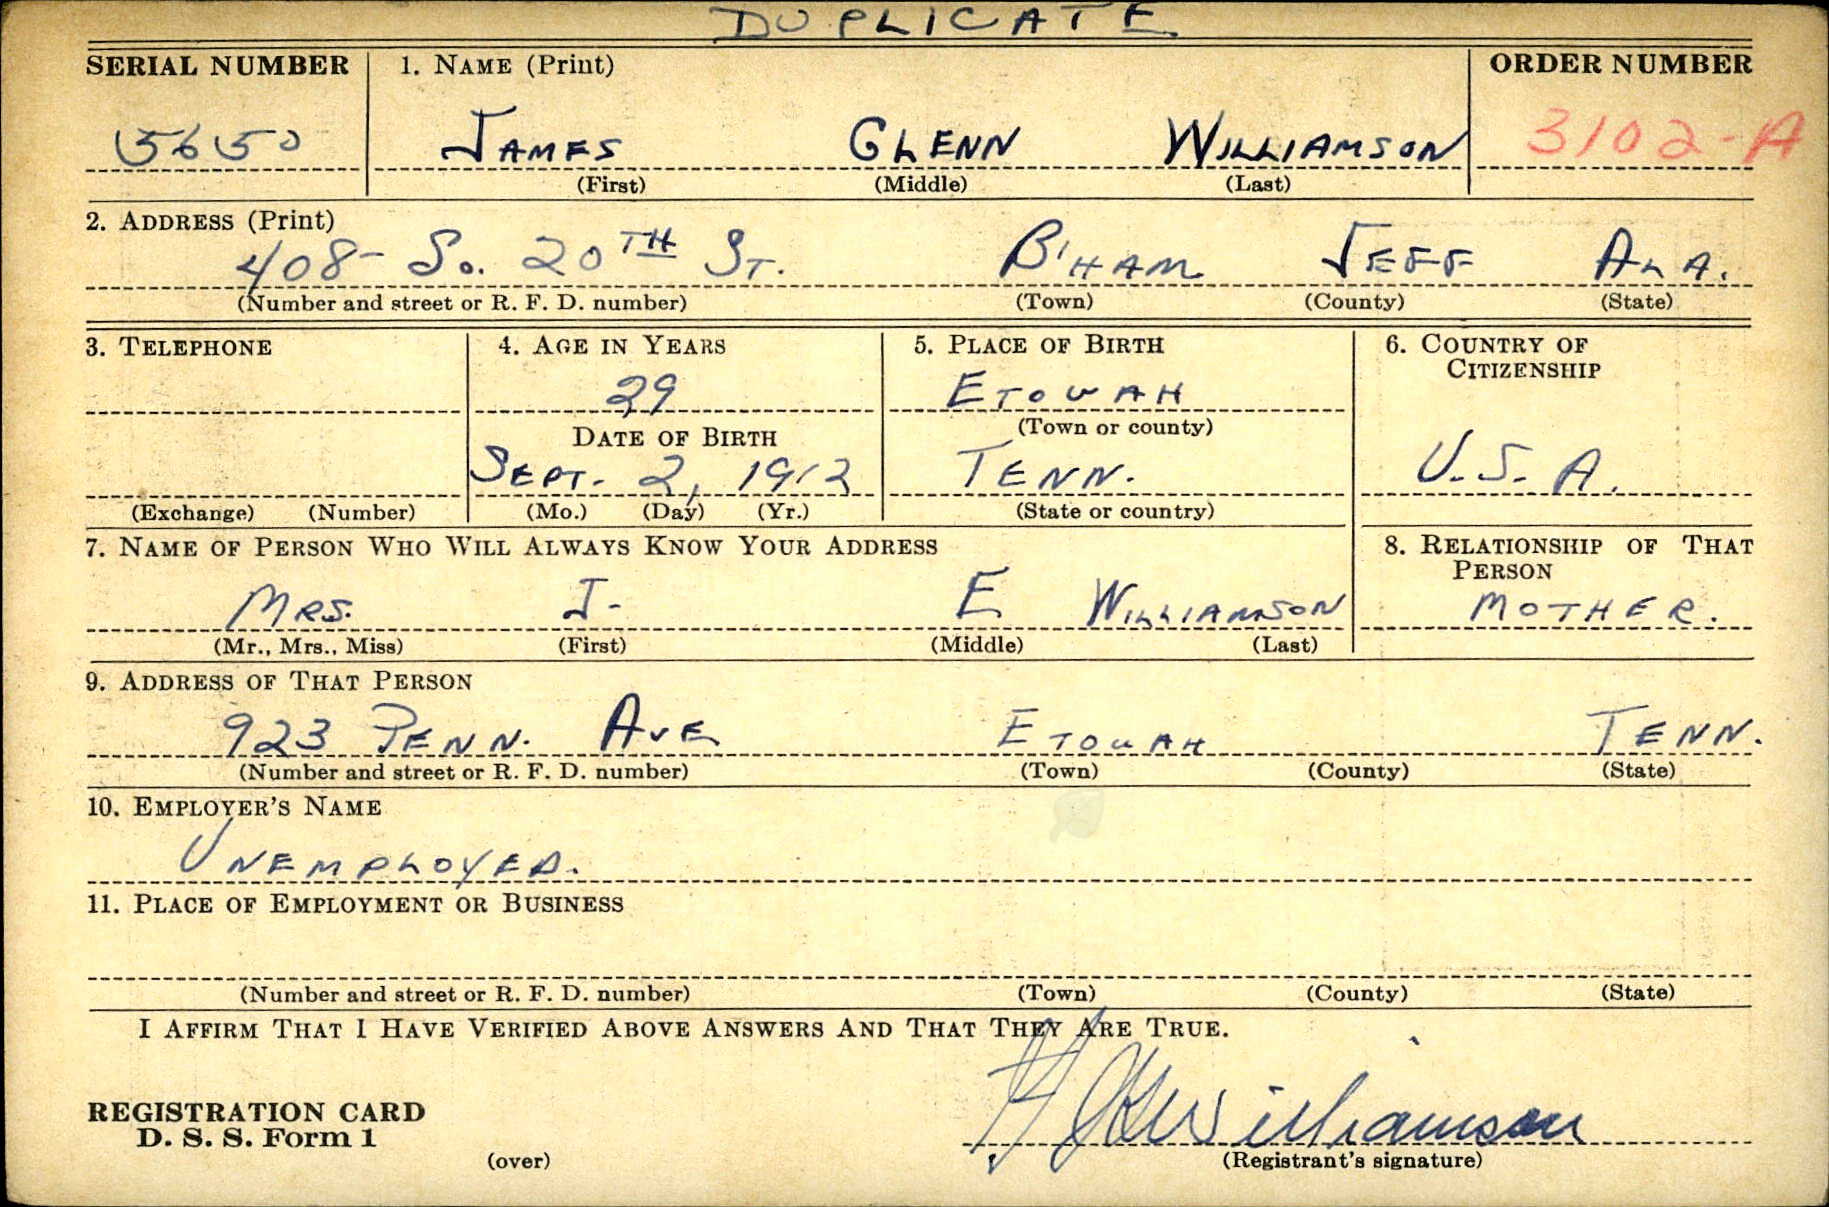 DUPLICATE
SERIAL NUMBER 1. NAME (Print) ORDER NUMBER
5650 JAMES GLENN WILLIAMSON 3102-A
(First) (Middle) (Last)
2. ADDRESS (Print)
408- So. 20TH ST. B'HAM JEFF ALA.
(Number and street or R. F. D. number) (Town) (County) (State)
3. TELEPHONE 4. AGE IN YEARS 5. PLACE OF BIRTH 6. COUNTRY OF
CITIZENSHIP
29 ETOWAH
DATE OF BIRTH (Town or county)
SEPT. 2, 1912 TENN. U.S.A.
(Exchange) (Number) (Mo.) (Day) (Yr.) (State or country)
7. NAME OF PERSON WHO WILL ALWAYS KNOW YOUR ADDRESS 8. RELATIONSHIP OF THAT
PERSON
MRS. J. E WILLIAMSON MOTHER.
(Mr., Mrs., Miss) (First) (Middle) (Last)
9. ADDRESS OF THAT PERSON
923 PENN. AVE ETOWAH TENN.
(Number and street or R. F. D. number) (Town) (County) (State)
10. EMPLOYER'S NAME
UNEMPLOYED.
11. PLACE OF EMPLOYMENT OR BUSINESS
(Number and street or R. F. D. number) (Town) (County) (State)
I AFFIRM THAT I HAVE VERIFIED ABOVE ANSWERS AND THAT THEY ARE TRUE.
REGISTRATION CARD
D. S. S. Form 1 Williamson
(over) (Registrant's signature)